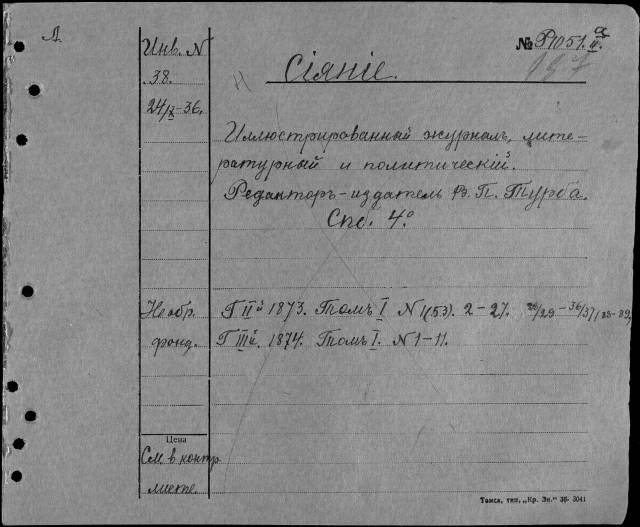 Л
Инв. N
38.
24/X-36.
№ Р1051. а/II.
197
Сіяніе.
Иллюстрированный журналъ, лите-
ратурный и политическій.
Редакторъ-издатель В. П. Турба.
Спб. 4.°
Необр.
фонд.
Г IIй 1873. Томъ I N 1(53). 2-27. 28/29-36/37
Г IIIй. 1874. Томъ I. N 1-11.
Цена
См. в контр.
листе.
Томск, тип. „Кр. Зн." 36- 3041